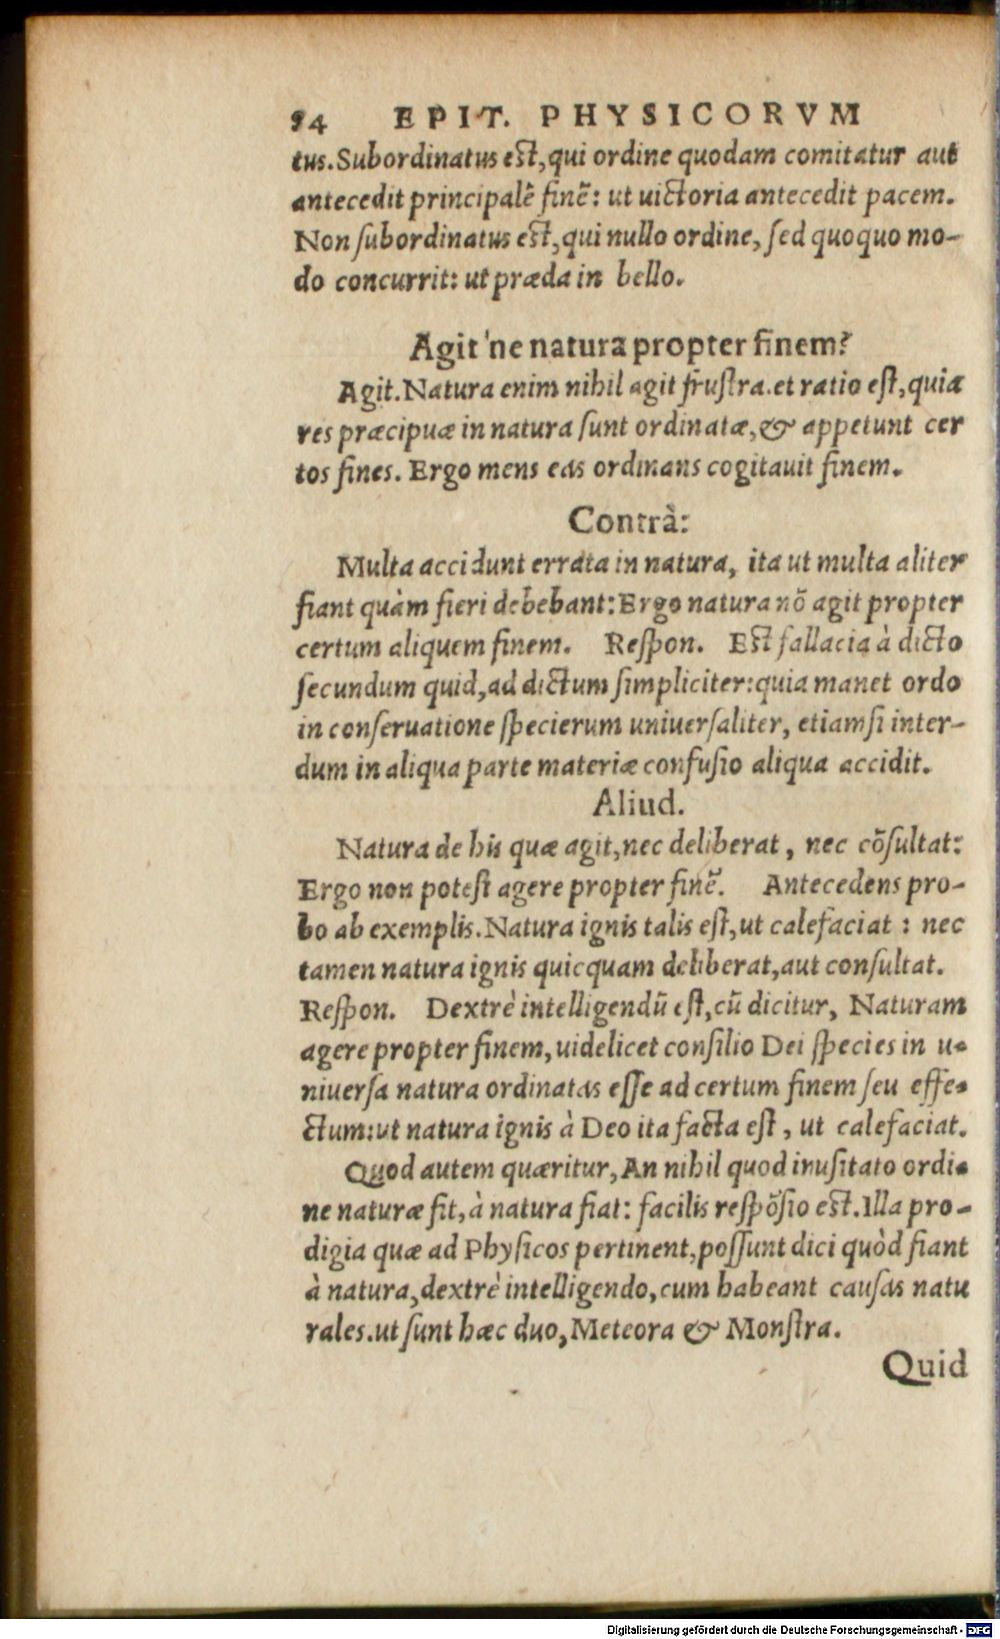 94 EPIT. PHYSICORVM
tus. Subordinatus est, qui ordine quodam comitatur aut
antecedit principalẽ finẽ: ut uictoria antecedit pacem.
Non ſubordinatus est, qui nullo ordine, ſed quoquo mo-
do concurrit: ut præda in bello.
Agit'ne natura propter finem?
Agit. Natura enim nihil agit fruſtra. et ratio eſt, quia
res præcipuæ in natura ſunt ordinatæ, & appetunt cer
tos fines. Ergo mens eas ordinans cogitauit finem.
Contrà:
Multa accidunt errata in natura, ita ut multa aliter
fiant quàm fieri debebant: Ergo natura nõ agit propter
certum aliquem finem. Reſpon. Est fallacia à dicto
ſecundum quid, ad dictum ſimpliciter: quia manet ordo
in conſeruatione ſpecierum uniuerſaliter, etiamſi inter-
dum in aliqua parte materiæ confuſio aliqua accidit.
Aliud.
Natura de his quæ agit, nec deliberat, nec cõſultat:
Ergo non poteſt agere propter finẽ. Antecedens pro-
bo ab exemplis. Natura ignis talis eſt, ut calefaciat: nec
tamen natura ignis quicquam deliberat, aut conſultat.
Reſpon. Dextrè intelligendũ eſt, cũ dicitur, Naturam
agere propter finem, uidelicet conſilio Dei ſpecies in u-
niuerſa natura ordinatas eſſe ad certum finem ſeu effe-
ctum: ut natura ignis à Deo ita facta eſt, ut calefaciat.
Quod autem quæritur, An nihil quod inuſitato ordi-
ne naturæ fit, à natura fiat: facilis reſpõſio est. Illa pro-
digia quæ ad Phyſicos pertinent, poſſunt dici quòd fiant
à natura, dextrè intelligendo, cum habeant cauſas natu
rales. ut ſunt hæc duo, Meteora & Monſtra.
Quid
Digitalisierung gefördert durch die Deutsche Forschungsgemeinschaft - DFG